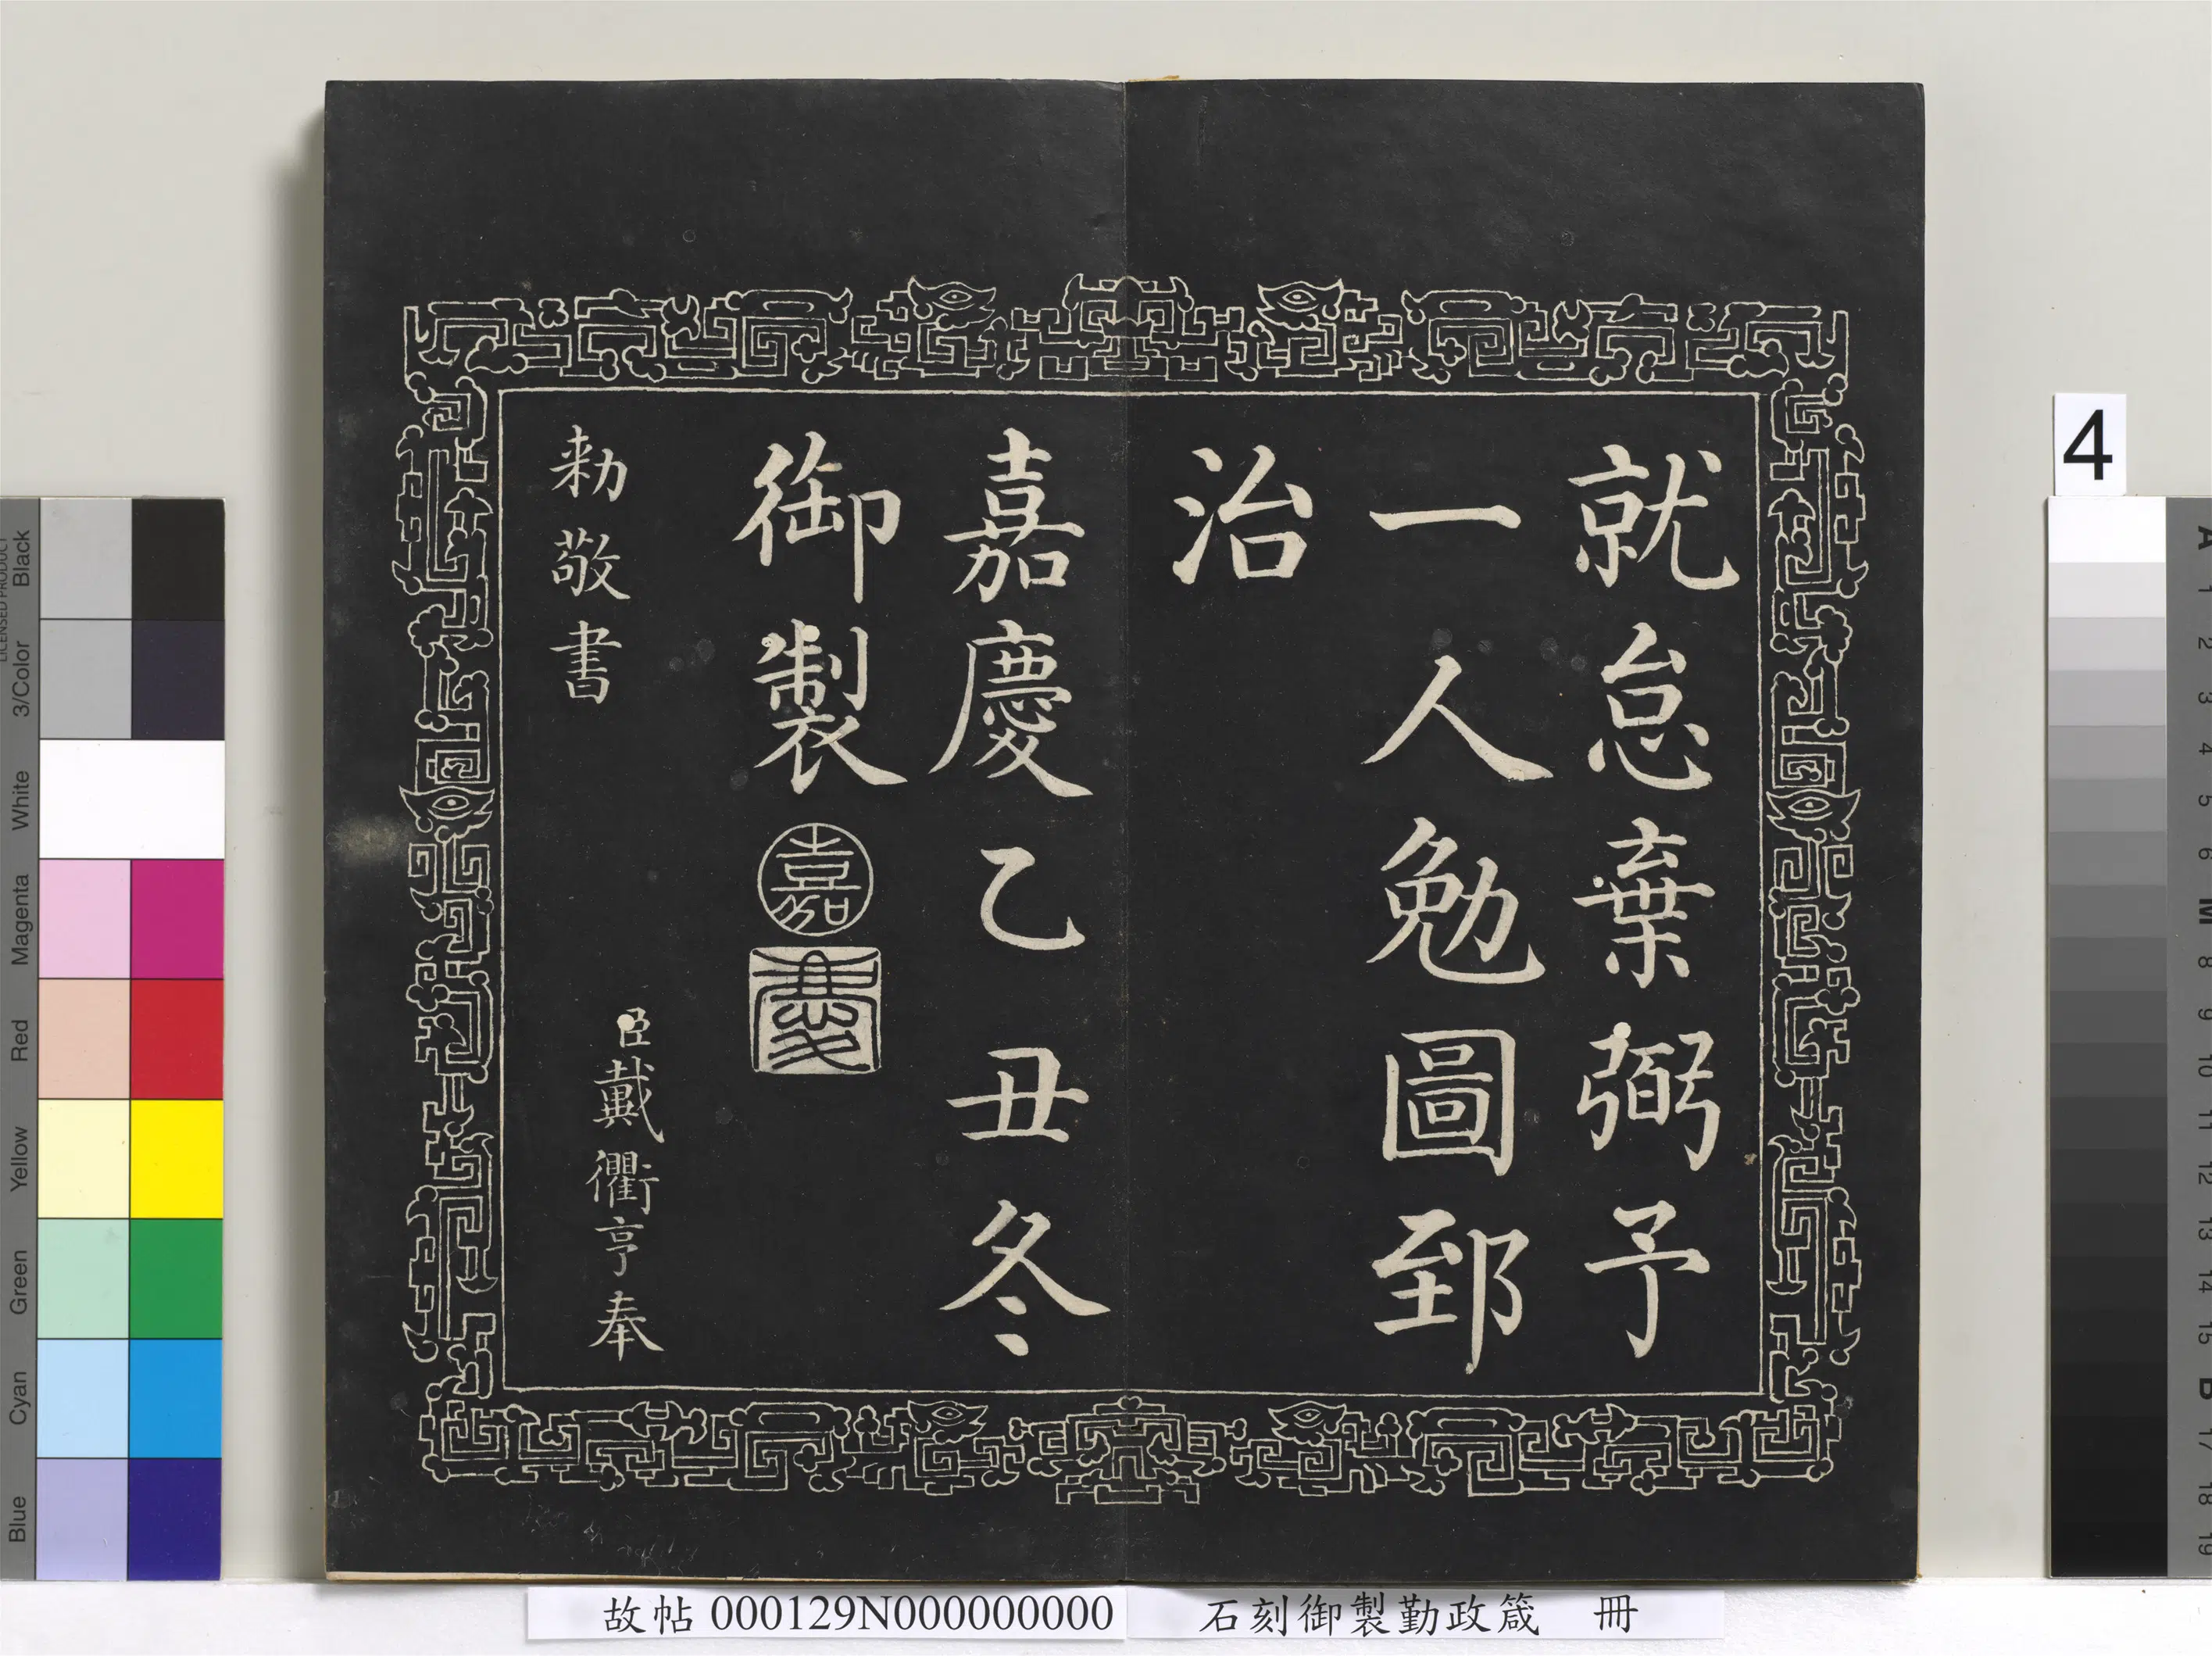 就怠棄弼予
一人勉圖郅
治
嘉慶乙丑冬
御製
嘉
慶
臣戴衢亨奉
勑敬書
故帖 000129N000000000
石刻御製勤政箴 冊
4
Black
3/Color
White
Magenta
Red
Yellow
Green
Cyan
Blue
LICENSED PRODUCT
A
1
2
3
4
5
6
M
8
9
10
11
12
13
14
15
B
17
18
19